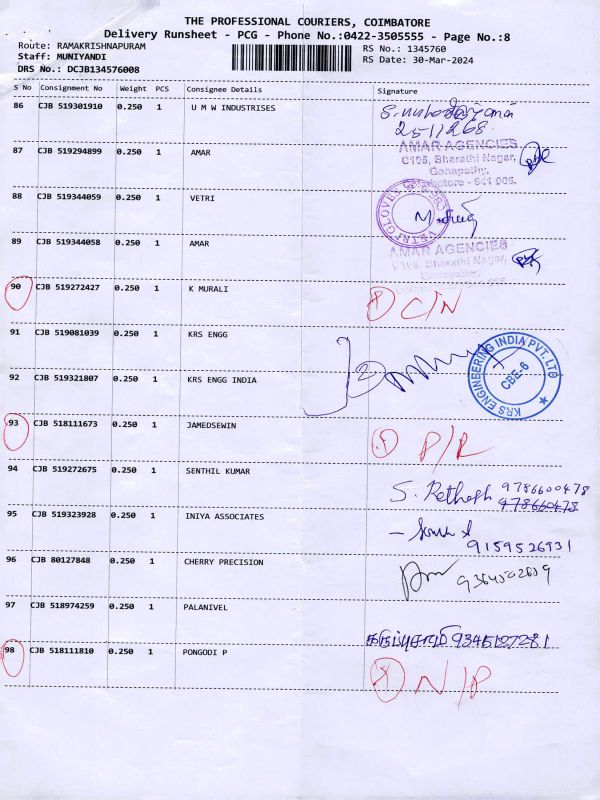 THE PROFESSIONAL COURIERS, COIMBATORE
Delivery Runsheet - PCG - Phone No.:0422-3505555 - Page No.:8
Route: RAMAKRISHNAPURAM RS No.: 1345760
Staff: MUNIYANDI RS Date: 30-Mar-2024
DRS No.: DCJB134576008
S No Consignment No Weight PCS Consignee Details Signature
86 CJB 519301910 0.250 1 U M W INDUSTRISES
251268
87 CJB 519294899 0.250 1 AMAR AMAR AGENCIES
C105, Bharathi Nagar,
Ganapathy,
88 CJB 519344059 0.250 1 VETRI VETRI GLOVES
89 CJB 519344058 0.250 1 AMAR AMAR AGENCIES
Bharathi Nagar,
Ganapathy,
90 CJB 519272427 0.250 1 K MURALI C/N
91 CJB 519081039 0.250 1 KRS ENGG
92 CJB 519321807 0.250 1 KRS ENGG INDIA 2 KRS ENGINEERING INDIA PVT. LTD CBE-6
93 CJB 518111673 0.250 1 JAMEDSEWIN P/R
94 CJB 519272675 0.250 1 SENTHIL KUMAR S. Rethesh 9786600478
978660478
95 CJB 519323928 0.250 1 INIYA ASSOCIATES
9159526931
96 CJB 80127848 0.250 1 CHERRY PRECISION
97 CJB 518974259 0.250 1 PALANIVEL
98 CJB 518111810 0.250 1 PONGODI P 9345127281
N/P